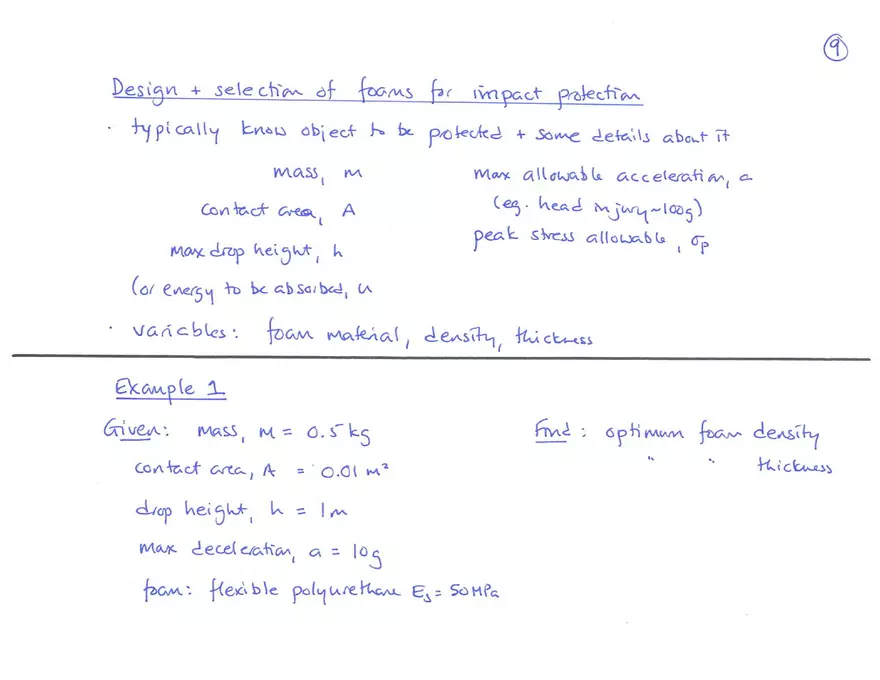 9
Design + selection of foams for impact protection
· typically know object to be protected + some details about it
mass, m
contact area, A
max drop height, h
(or energy to be absorbed, u
max allowable acceleration, a
(eg. head injury ~100g)
peak stress allowable, σp
· variables: foam material, density, thickness
Example 1
Given: mass, m = 0.5 kg
contact area, A = 0.01 m²
drop height, h = 1m
max deceleration, a = 10g
foam: flexible polyurethane Es = 50 MPa
Find: optimum foam density
" " thickness